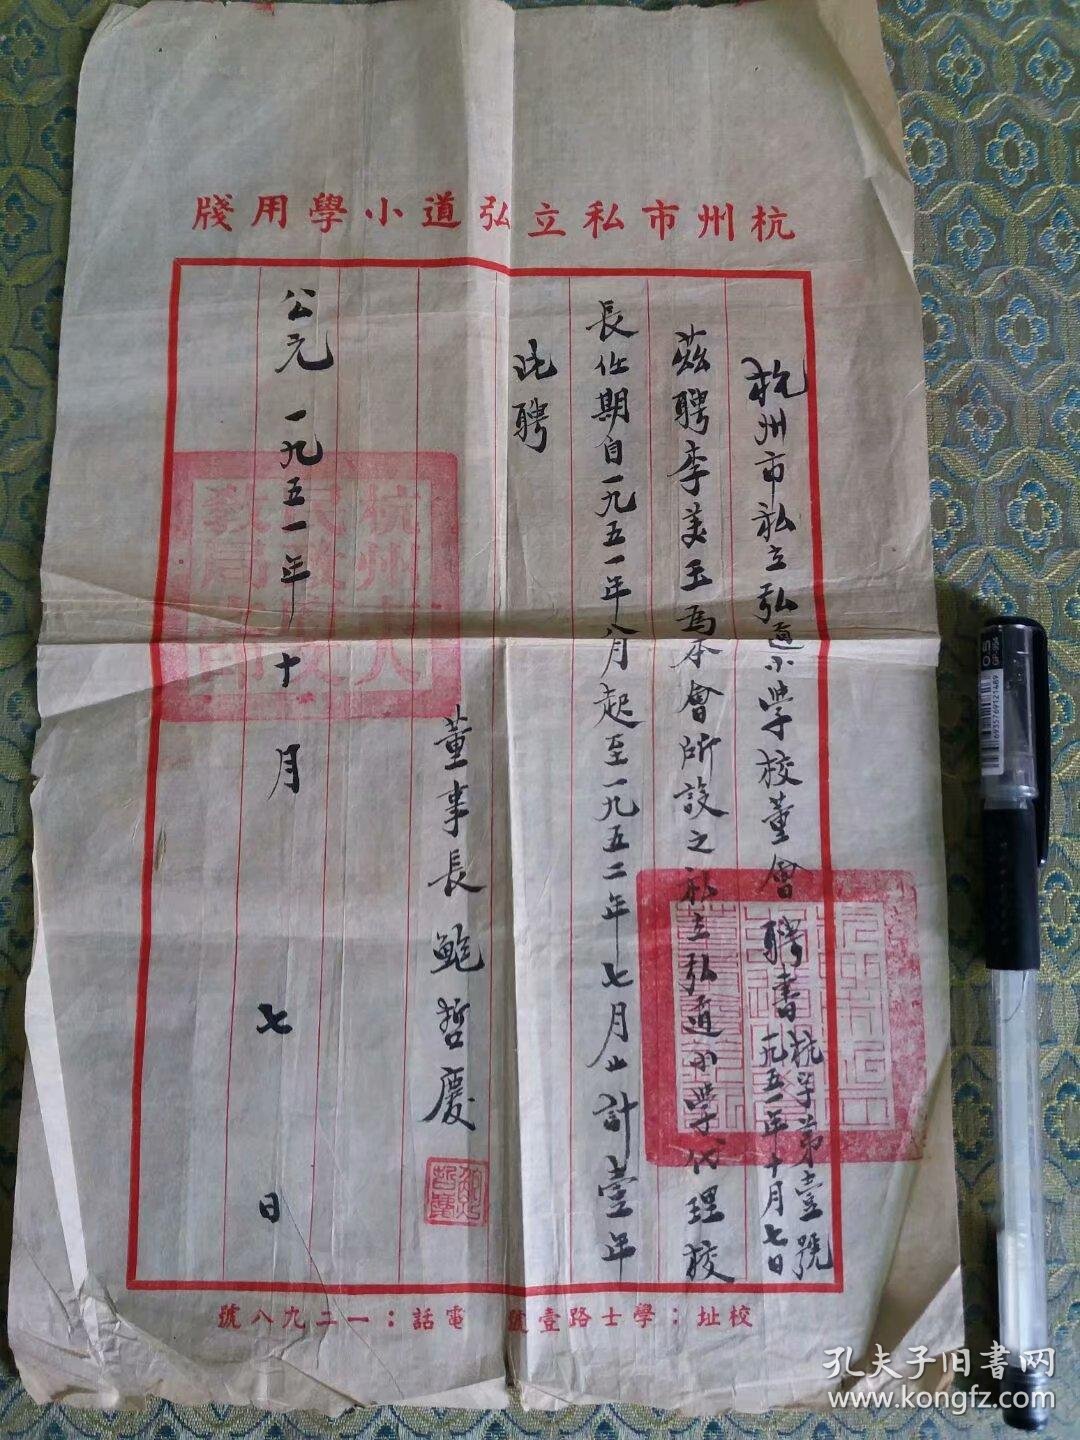 杭州市私立弘道小學用牋
杭州市私立弘道小学校董會聘書
杭字第壹號
一九五一年十月七日
茲聘李美玉為本會所設之私立弘道小学代理校
長任期自一九五一年八月起至一九五二年七月止計壹年
此聘
董事長 鮑哲慶
公元一九五一年十月七日
杭州市人
民政府文
教局印
校址：學士路壹號 電話：一二九八號
孔夫子旧書网
www.kongfz.com
6935769121489